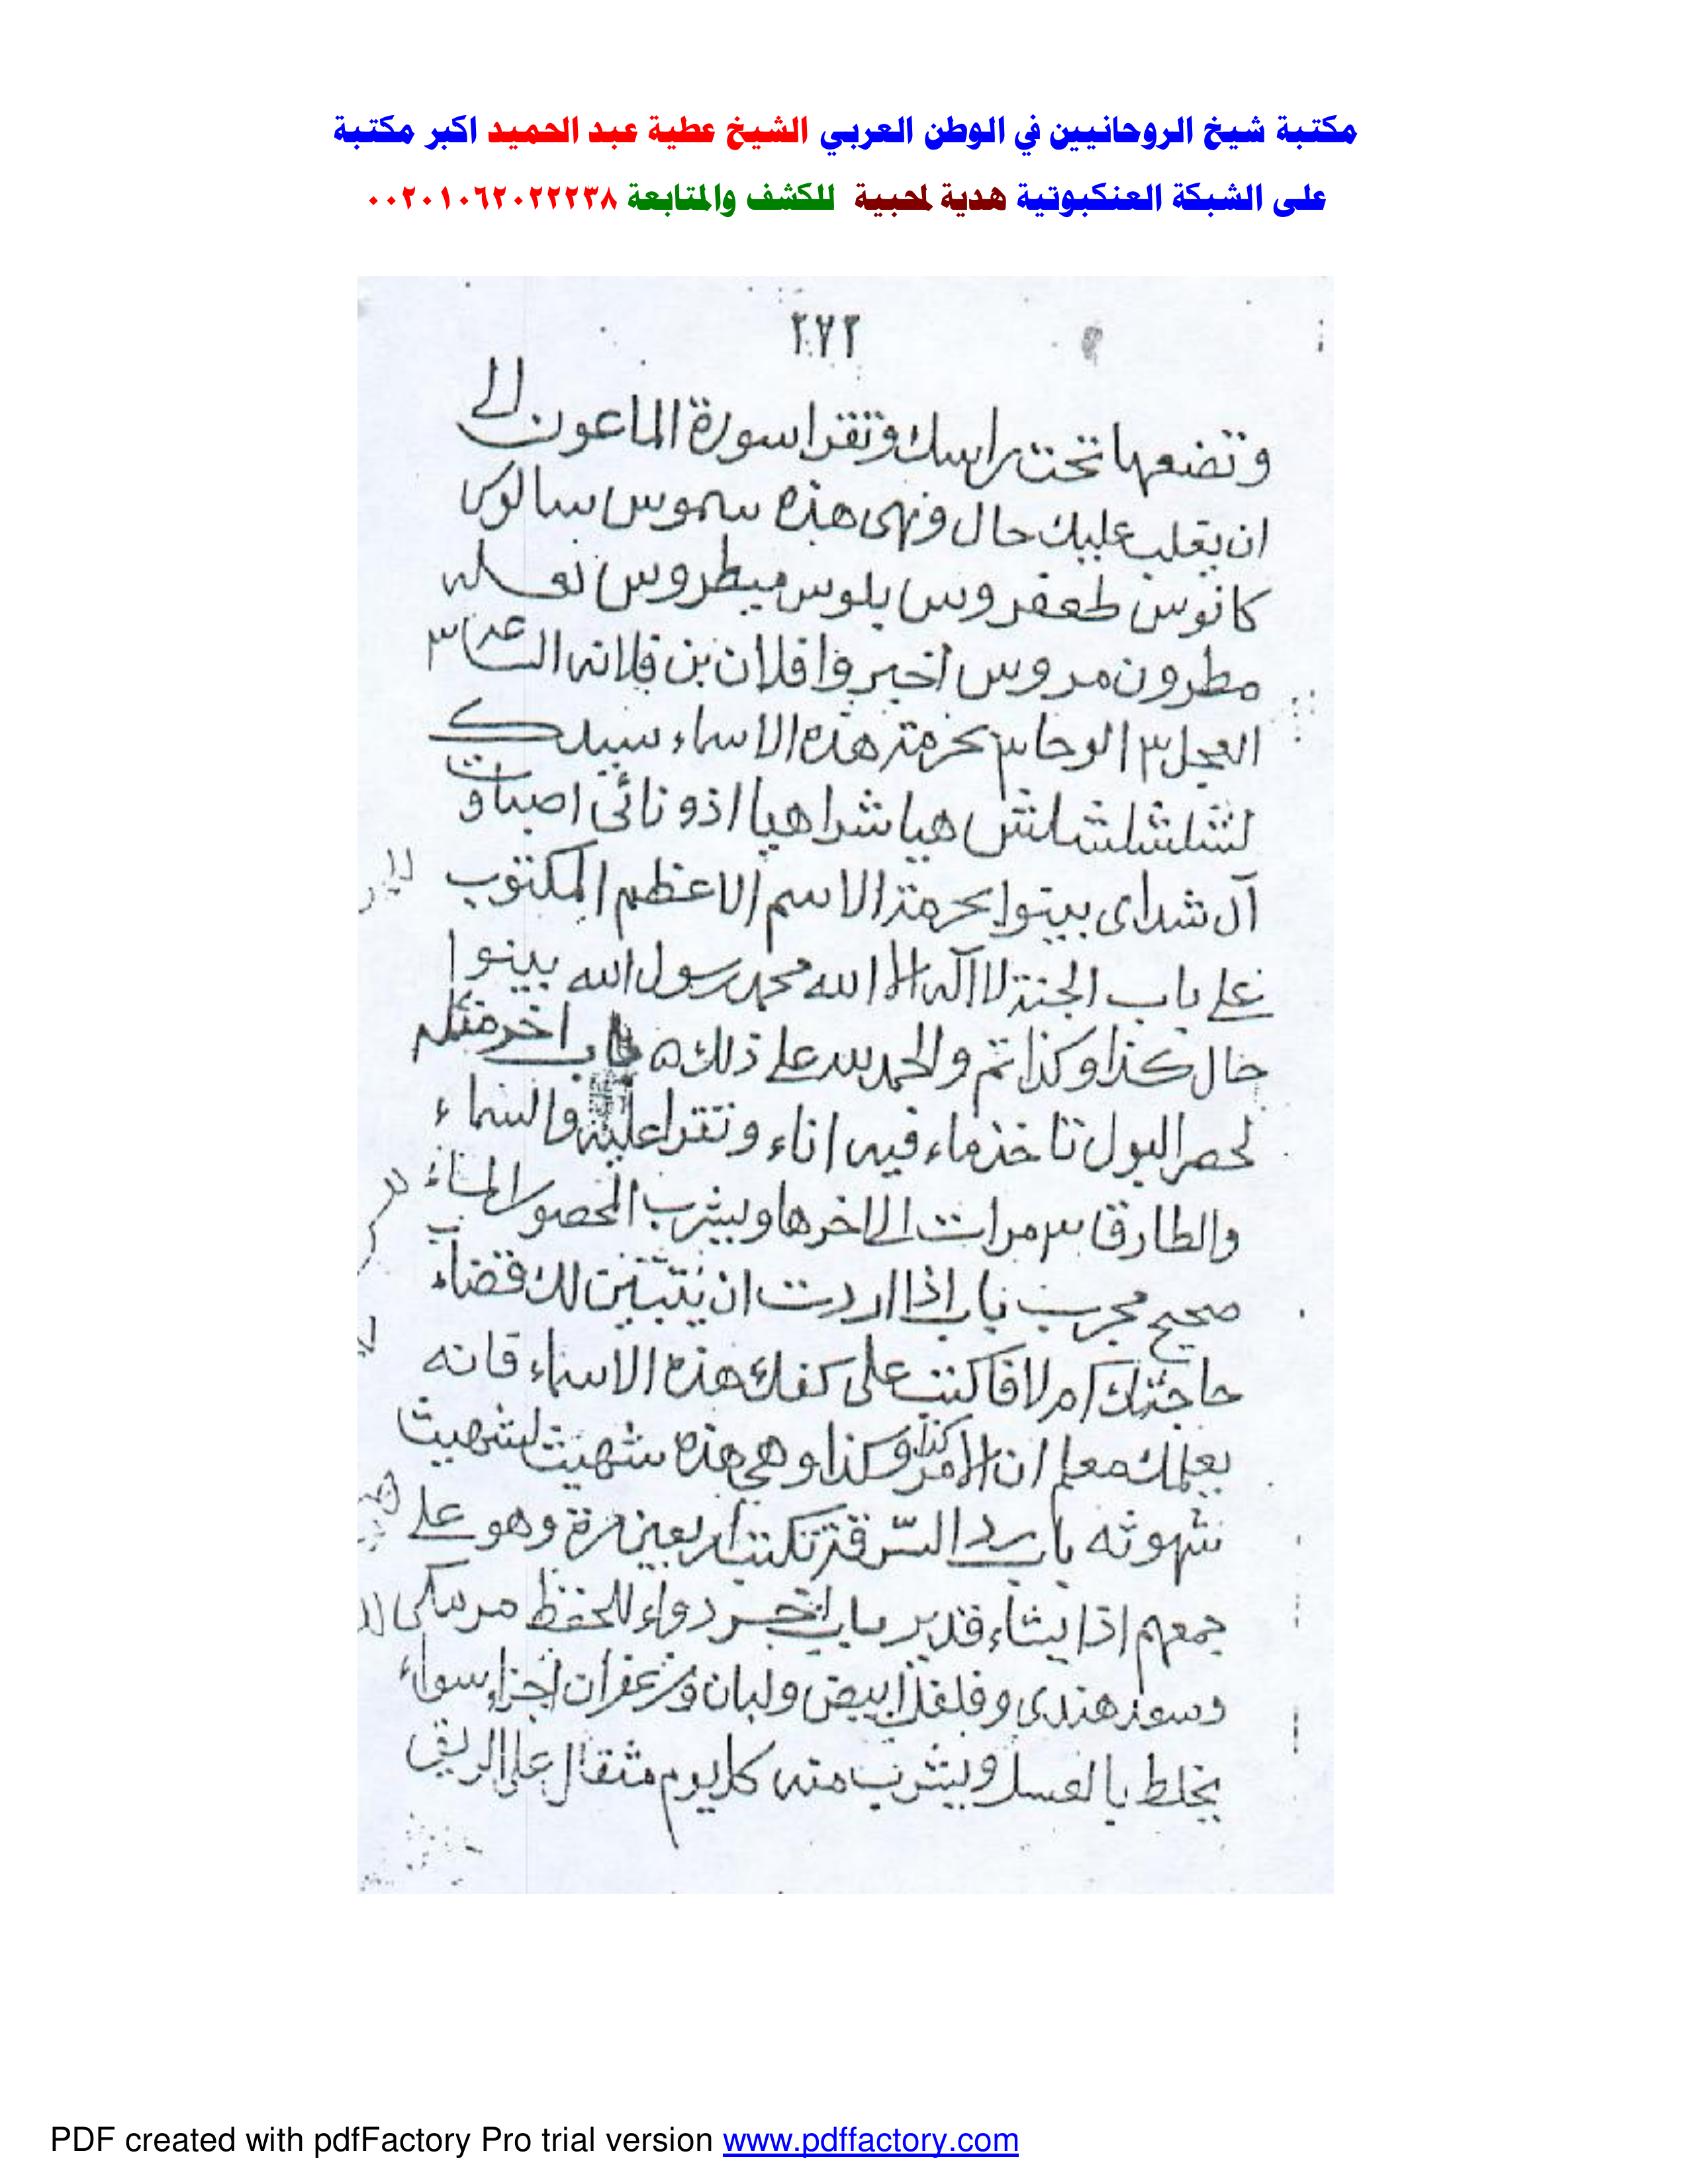 مكتبة شيخ الروحانيين في الوطن العربي الشيخ عطية عبد الحميد اكبر مكتبة
على الشبكة العنكبوتية هدية لمحبيه للكشف والمتابعة ٠٠٢٠١٠٦٢٠٢٢٢٣٨
٢٧٢
وتضعها تحت راسك وتقرا سورة الماعون الى
ان يغلب عليك حال وهى هذه سموس سالوس
كانوس طعفروس بلوس ميطروس
مطرون مدروس اخبروا فلان بن فلانه الساعه ٣
العجل ٣ الوحا ٣ بحرمة هذه الاسماء
لشلشلشلش هيا شراهيا اذونائى اصباوت
آل شداى بينوا بحرمة الاسم الاعظم المكتوب
على باب الجنة لا اله الا الله محمد رسول الله بينوا
حال كذا وكذا تم والحمد لله على ذلك ه باب اخر مثله
لحصر البول تاخذ ماء فيه اناء وتقرا عليه والسماء
والطارق ٣ مرات الى اخرها ويشرب المحصور الماء
صحيح مجرب باب اذا اردت ان يتبين لك قضاء
حاجتك ام لا فاكتب على كفك هذه الاسماء فانه
يعلمك معلم ان الامر كذا وكذا وهي هذه شهيث لشهيث
شهوثه باب رد السرقة تكتب اربعين مرة وهو على
جمعهم اذا يشاء قدير باب اخر دواء للحفظ مرمكى
وسوز هندى وفلفل ابيض ولبان وزعفران اجزاء سواء
يخلط بالعسل ويشرب منه كل يوم مثقال على الريق
PDF created with pdfFactory Pro trial version www.pdffactory.com